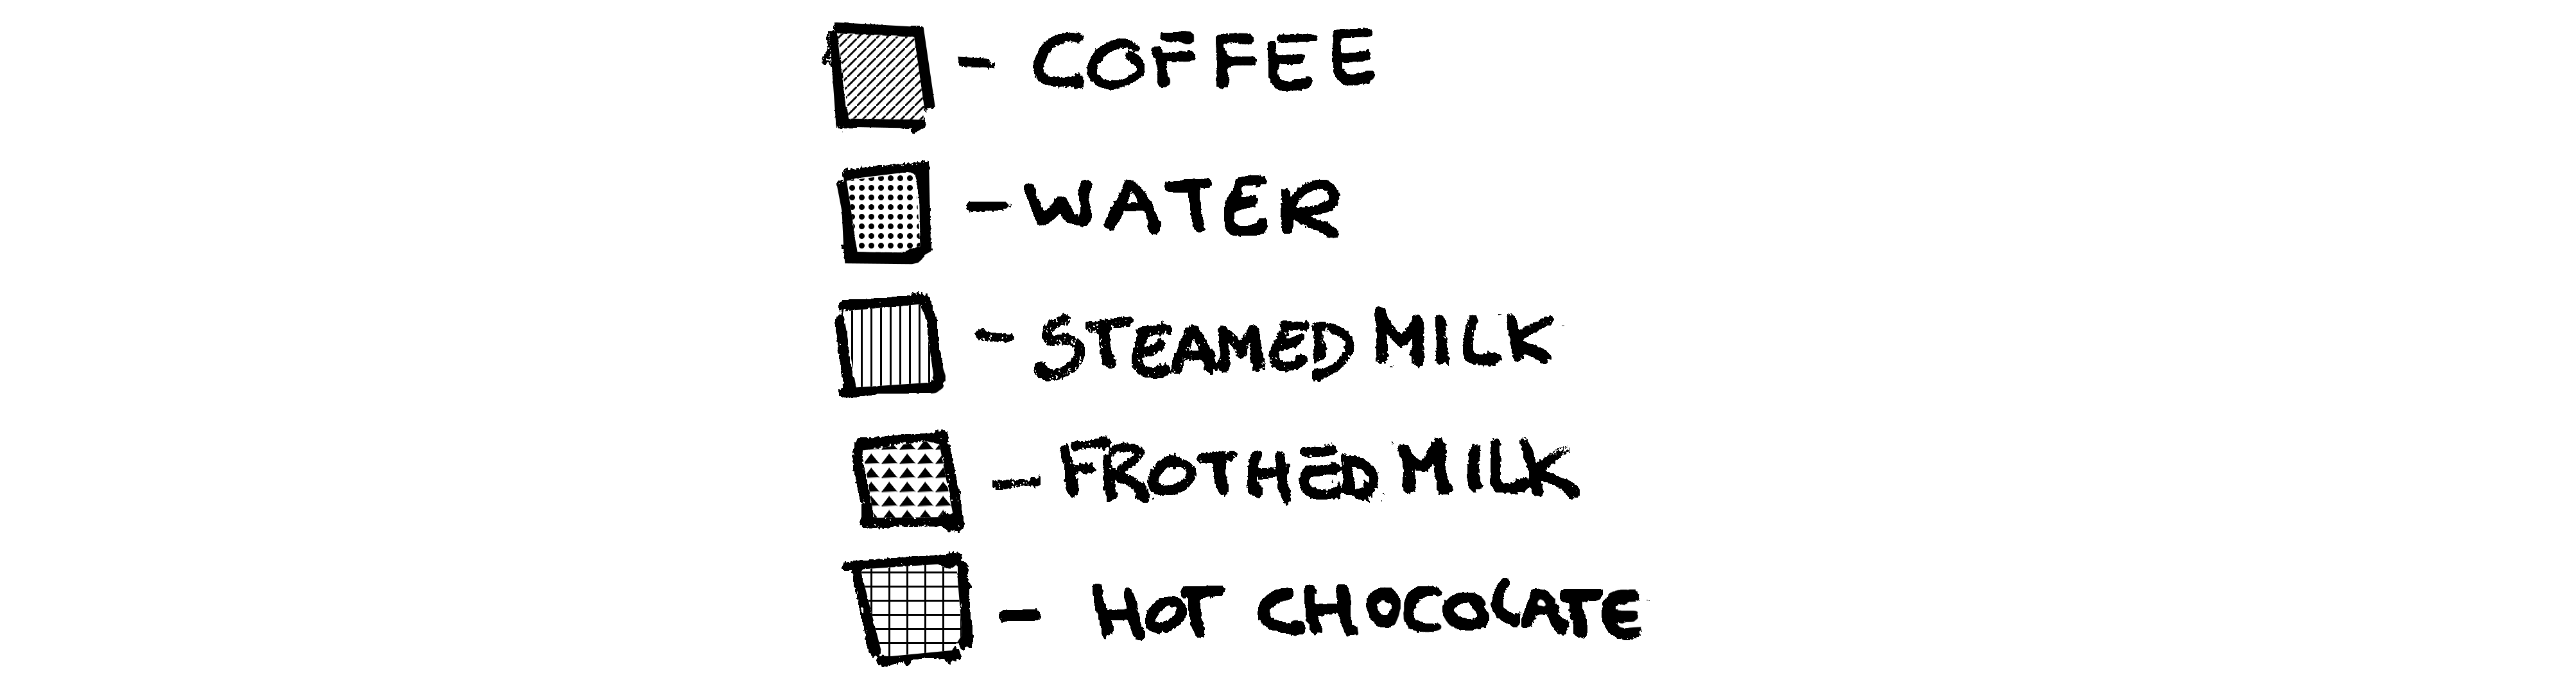 - COFFEE
- WATER
- STEAMED MILK
- FROTHED MILK
- HOT CHOCOLATE